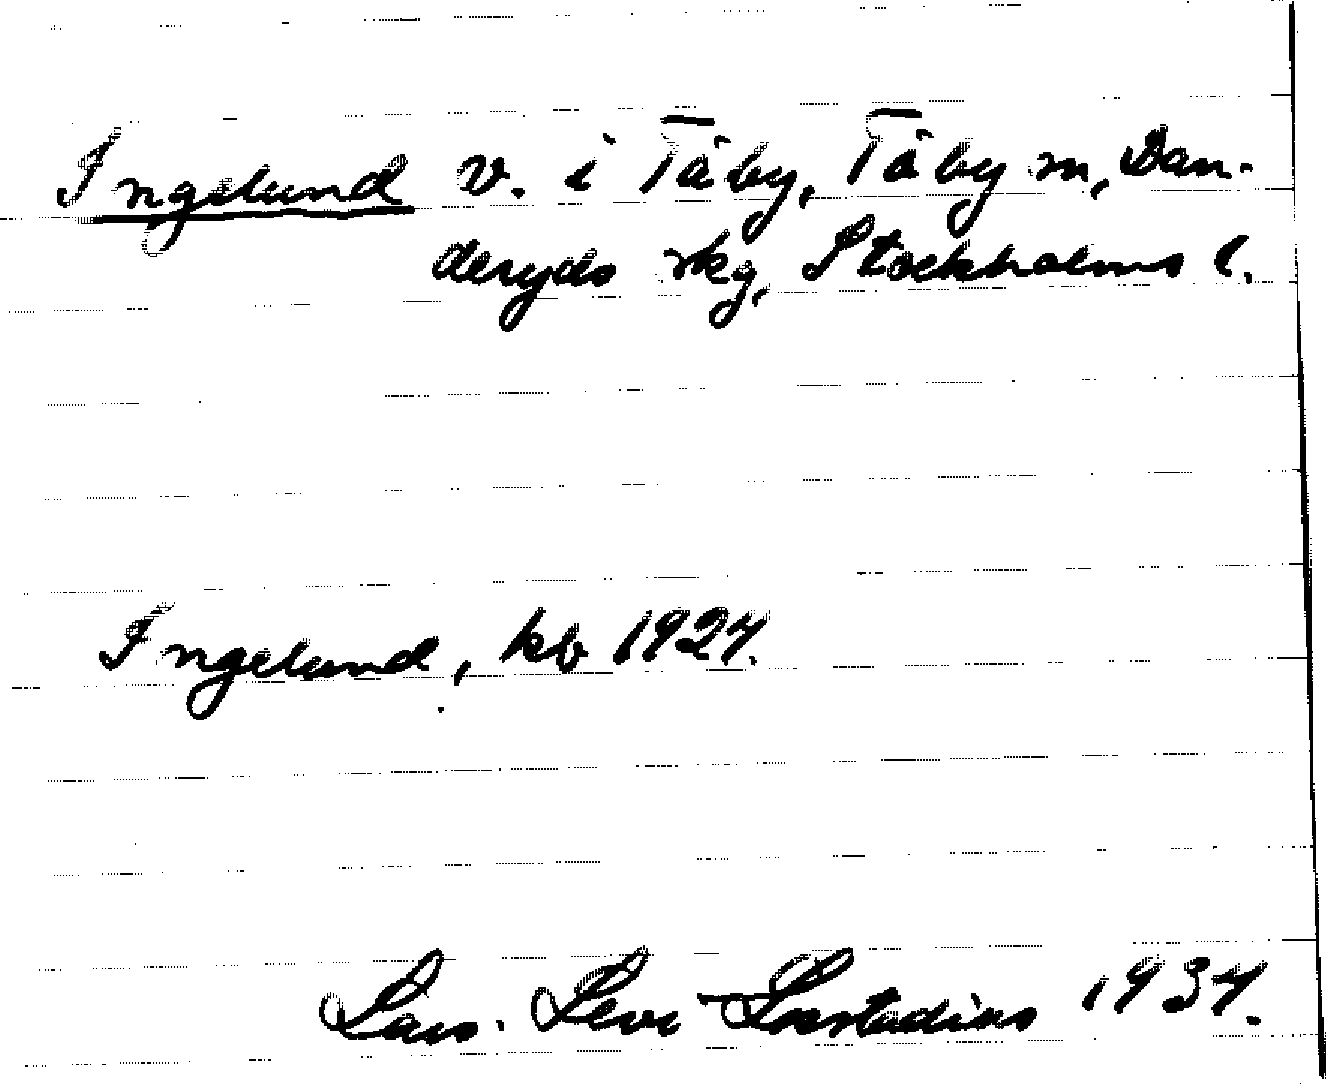 Ingelund v. i Täby, Täby sn, Dan-
deryds skg, Stockholms l.
Ingelund, kb 1924.
Lars-Levi Læstadius 1934.